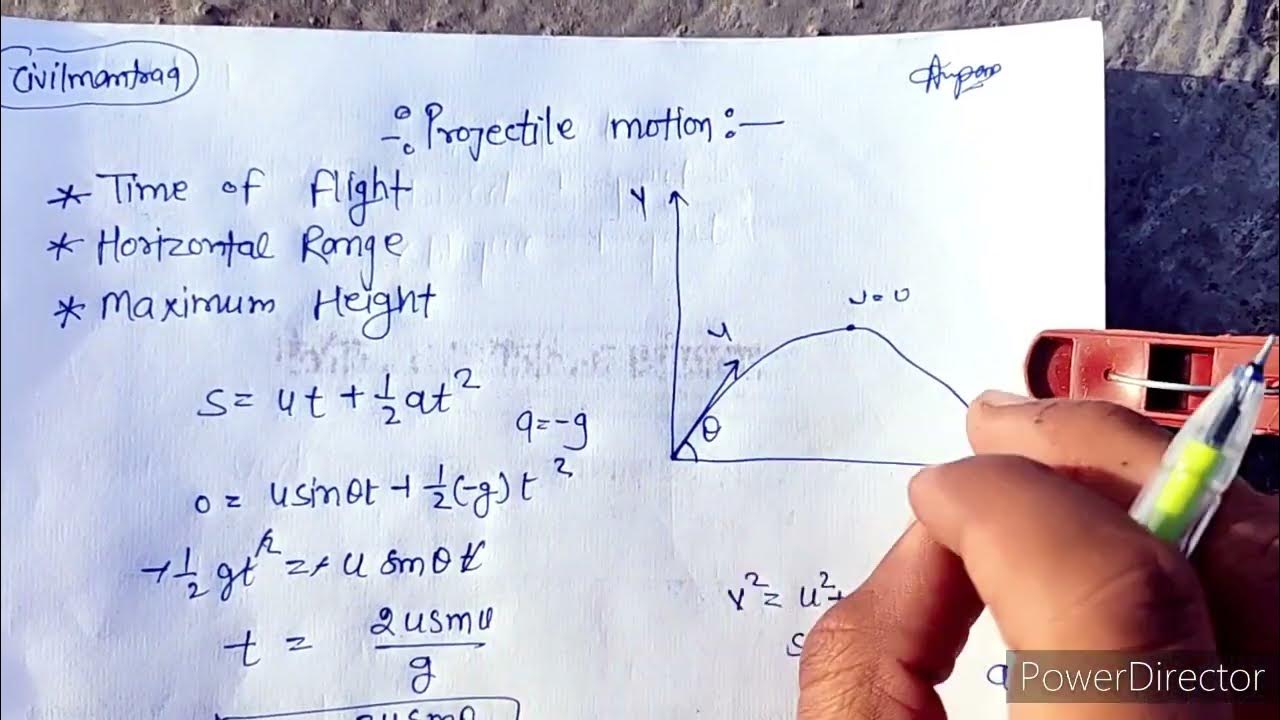 Civilmantraa
Anpam
÷ Projectile motion :—
* Time of flight
* Horizontal Range
* Maximum Height
Y
u
v=0
θ
s= ut + 1/2 at²
a=-g
0 = usinθt + 1/2 (-g) t²
+ 1/2 gt² = + u sinθ t
t = 2usinθ/g
2usinθ
v² = u²+
s
a
PowerDirector